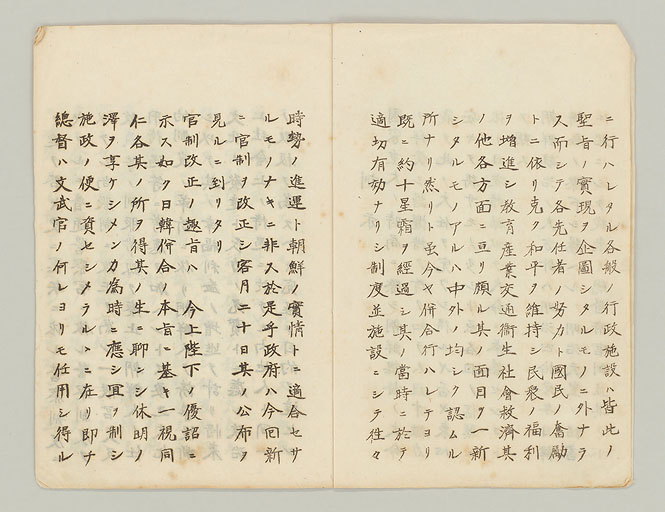 ニ行ハレタル各般ノ行政施設ハ皆此ノ
聖旨ノ實現ヲ企圖シタルモノニ外ナラ
ス而シテ各先任者ノ努力ト國民ノ奮勵
トニ依リ克ク和平ヲ維持シ民衆ノ福利
ヲ增進シ敎育産業交通衞生社會救濟其
ノ他各方面ニ亘リ頗ル其ノ面目ヲ一新
シタルモノアルハ中外ノ均シク認ムル
所ナリ然リト虽今ヤ併合行ハレテヨリ
既ニ約十星霜ヲ經過シ其ノ當時ニ於テ
適切有効ナリシ制度並施設ニシテ往々
時勢ノ進運ト朝鮮ノ實情トニ適合セサ
ルモノナキニ非ス於是乎政府ハ今回新
ニ官制ヲ改正シ客月二十日其ノ公布ヲ
見ルニ到リタリ
官制改正ノ趣旨ハ 今上陛下ノ優詔ニ
示ス如ク日韓併合ノ本旨ニ基キ一視同
仁各其ノ所ヲ得其ノ生ニ聊ンシ休明ノ
澤ヲ享ケシメンカ為時ニ應シ宜ヲ制シ
施政ノ便ニ資セシメラルヽニ在リ即チ
總督ハ文武官ノ何レヨリモ任用シ得ル